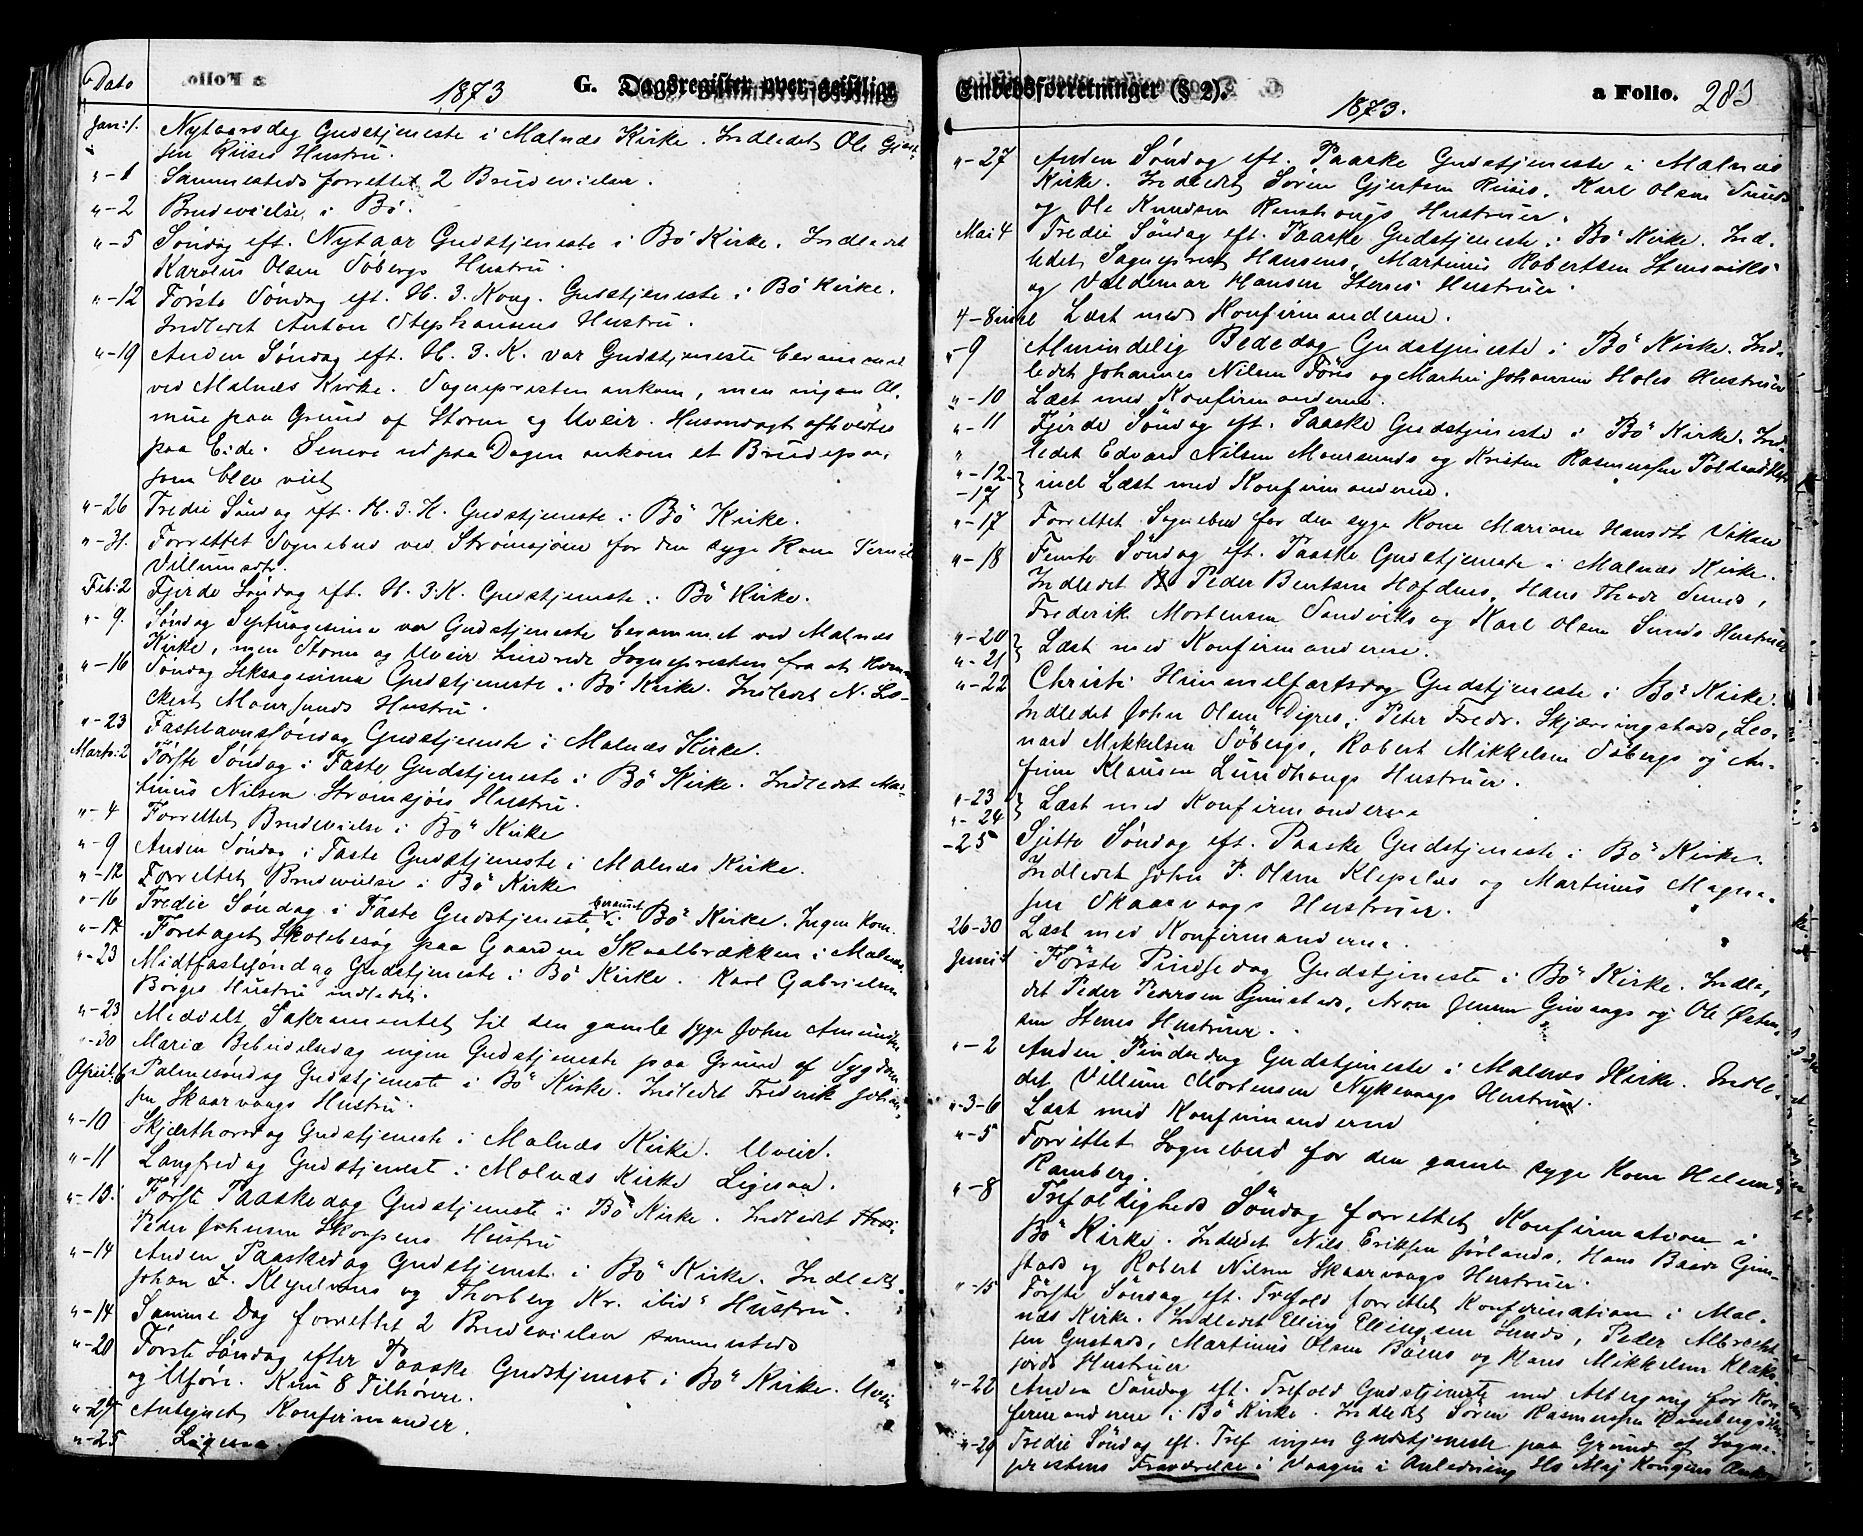 Dato 1873 G. Dagsregister over geistlige
Jan: 1. Nytaarsdag Gudstjeneste i Malnæs Kirke. Indledet Ole Gjert-
sen Riises Hustru.
"-1 Sammesteds forrettet 2 Brudevielser.
"-2 Brudevielse i Bö.
"-5 Søndag eft. Nytaar Gudstjeneste i Bö Kirke. Indledet
Karolius Olsen Søbergs Hustru.
"-12 Første Søndag eft. H. 3. Kong. Gudstjeneste i Bö Kirke.
Indledet Anton Stephansens Hustru.
"-19 Anden Søndag eft. H. 3. K. var Gudstjeneste berammet
ved Malnæs Kirke. Sognepresten ankom, men ingen Al-
mue paa Grund af Storm og Uveir. Husandagt
paa Eide. Senere ud paa Dagen ankom et Brudepar,
som blev viet
"-26 Tredie Søndag eft. H. 3. K. Gudstjeneste i Bö Kirke.
"-31. Forrettet Sognebud ved Strømsjøen for den syge Kone
Villumsdtr.
Feb: 2 Fjerde Søndag eft. H. 3. K. Gudstjeneste i Bö Kirke.
"-9. Søndag Septuagesima var Gudstjeneste berammet ved Malnæs
Kirke, men Storm og Uveir hindrede Sognepresten fra at komme
"-16 Søndag Seksagesima Gudstjeneste i Bö Kirke. Indledet N.
Moursunds Hustru.
"-23 Fastelavnssøndag Gudstjeneste i Malnæs Kirke.
Marts: 2 Første Søndag i Faste Gudstjeneste i Bö Kirke. Indledet Mar-
tinus Nilsen Strømsjøns Hustru.
"-4 Forrettet Brudevielse i Bö Kirke
"-9 Anden Søndag i Faste Gudstjeneste i Malnæs Kirke.
"-12 Forrettet Brudevielse i Bö Kirke
"-16 Tredie Søndag i Faste Gudstjeneste beramet i Bö Kirke. Ingen kom.
"-17. Foretaget Skolebesøg paa Gaarden Skaalbrækken i Malnæs.
"-23 Midtfastesøndag Gudstjeneste i Bö Kirke. Karl Gabrielsen
Borges Hustru indledet.
"-23 Meddelt Sakramentet til den gamle syge John Amundsen
"-30 Mariæ Bebudelsesdag ingen Gudstjeneste paa Grund af Sygdom
April: 6 Palmesøndag Gudstjeneste i Bö Kirke. Indledet Frederik Johan-
sen Skaarvaags Hustru.
"-10 Skjærthorsdag Gudstjeneste i Malnæs Kirke. Uveir.
"-11 Langfredag Gudstjenest i Malnæs Kirke. Ligesaa.
"-13. Første Paaskedag Gudstjeneste i Bö Kirke. Indledet
Peder Johnsen Skorpens Hustru
"-14 Anden Paaskedag Gudstjenest i Bö Kirke. Indledet
Johan og Thorberg Kr. ibid" Hustru.
"-14 Samme Dag forrettet 2 Brudevielser sammesteds
"-20 Første Søndag efter Paaske Gudstjeneste i Bö Kirke. Uveir
og Uføre. Kun 8 Tilhørere.
"-24 Antegnet Konfirmander.
"-25 Ligesaa.
Embedsforretninger (§ 2). 1873. a Folio. 283
"-27 Anden Søndag eft. Paaske Gudstjeneste i Malnæs
Kirke. Indledet Søren Gjertsen Riises, Karl Olsen Sunds
og Ole Knudsen Hustruer.
Mai 4 Tredie Søndag eft. Paaske Gudstjeneste i Bö Kirke. Ind-
ledet Sogneprest Hansens, Martinus Robertsen Stensviks
og Valdemar Hansen Stenes Hustruer.
4-8 incl Læst med Konfirmanderne.
"-9 Almindelig Bededag Gudstjeneste i Bö Kirke. Ind-
ledet Johannes Nilsen Föres og Johannes Holes Hustruer
"-10 Læst med Konfirmanderne.
"-11 Fjerde Søndag eft. Paaske Gudstjeneste i Bö Kirke. Ind-
ledet Edvard Nilsen Moursunds og Kristen Rasmussen
"-12-17 } incl Læst med Konfirmanderne.
"-17 Forrettet Sognebud for den syge Kone Mariane Hansdtr
"-18 Femte Søndag eft. Paaske Gudstjeneste i Malnæs Kirke.
Indledet Peder Bentsen Hofdens, Hans Sunds,
Frederik Mortensen Sandviks og Karl Olsen Sunds Hustruer
"-20 "-21 } Læst med Konfirmanderne.
"-22 Christi Himmelfartsdag Gudstjeneste i Bö Kirke.
Indledet John Olsen Digres, Peter Fredr. Skjærringstads, Leo-
nard Mikkelsen Søbergs, Robert Mikkelsen Søbergs og An-
fin Klausen Lundhaugs Hustruer.
"-23 "-24 } Læst med Konfirmanderne
-25 Sjette Søndag eft. Paaske Gudstjeneste i Bö Kirke.
Indledet John P. Olsen og Martinus Magnu-
sen Skaarvaags Hustruer.
26-30 Læst med Konfirmanderne.
Juni 1 Første Pindsedag Gudstjeneste i Bö Kirke. Indle-
det Peder Pedersen Aron Jensen og Ole
Stenes Hustruer.
"-2 Anden Pindsedag Gudstjeneste i Malnæs Kirke. Indle-
det Villum Mortensen Nykvaags Hustru.
"-3-6 Læst med Konfirmanderne
"-5 Forrettet Sognebud for den gamle syge Kone
Ramberg.
"-8 Trefoldigheds Søndag forrettet Konfirmation i
Bö Kirke. Indledet Nils Eriksen Jörlands, Hans
og Robert Nilsen Skaarvaags Hustruer.
"-15 Første Søndag eft. Trefold forrettet Konfirmation i Mal-
næs Kirke. Indledet Elling Ellingsen Sunds, Peder Albrecht-
sen Martinus Olsen og Hans Mikkelsen Klaks-
jords Hustruer
"-22 Anden Søndag eft. Trefold Gudstjeneste med Altergang for Kon-
firmanderne i Bö Kirke. Indledet Søren Rasmussen Rambergs
"-29 Tredie Søndag eft. Tref ingen Gudstjeneste paa Grund af Sogne-
prestens Fraværelse i Vaagen i Anledning Hs Maj Kongens